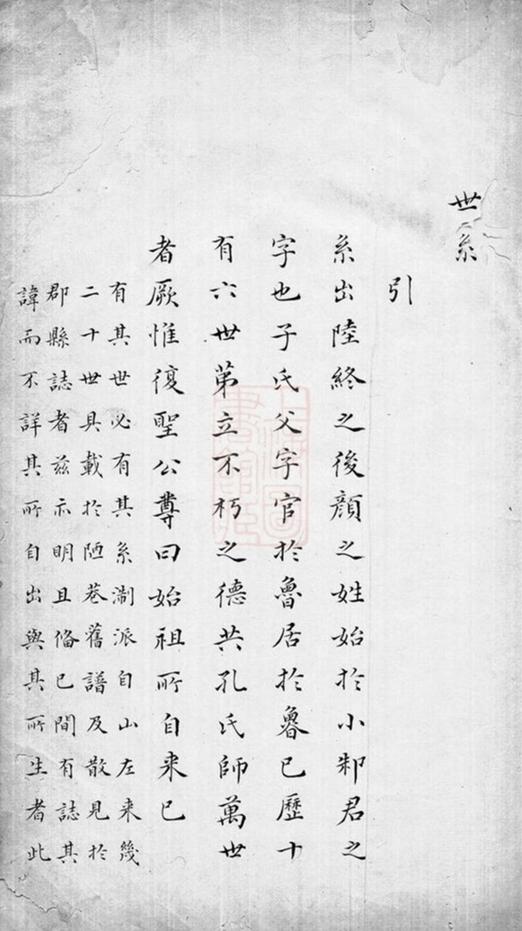 世系
引
系出陸終之後顏之姓始於小邾君之
字也子氏父字官於魯居於魯已歷十
有六世第立不朽之德共孔氏師萬世
者厥惟復聖公尊曰始祖所自来已
有其世必有其系淛派自山左来幾
二十世具載於陋巷舊譜及散見於
郡縣誌者兹示明且俻已間有誌其
諱而不詳其所自出與其所生者此